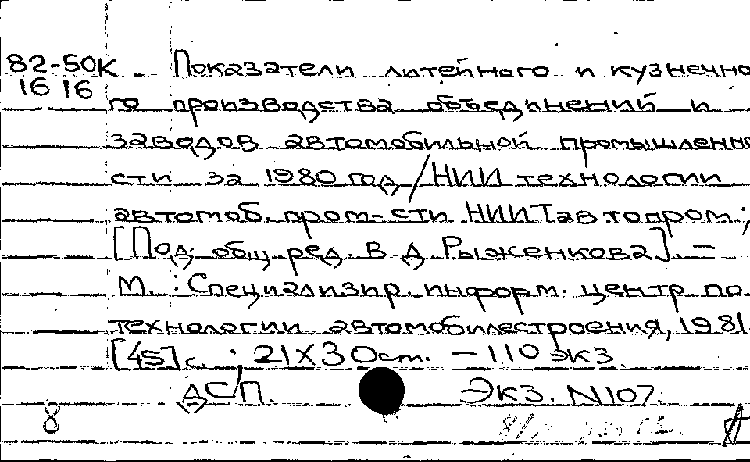 82-50К Показатели литейного и кузнечно
16 16
го производства объединений и
заводов автомобильной промышленно
сти за 1980 год / НИИ технологии
автомоб. пром-сти НИИТавтопром;
[Под общ. ред. В Д Рыженкова]. –
М. : Специализир. информ. центр по
технологии автомобилестроения, 1981.
[45] с. · 21Х30см. – 110 экз.
ДСП. Экз. N107.
8